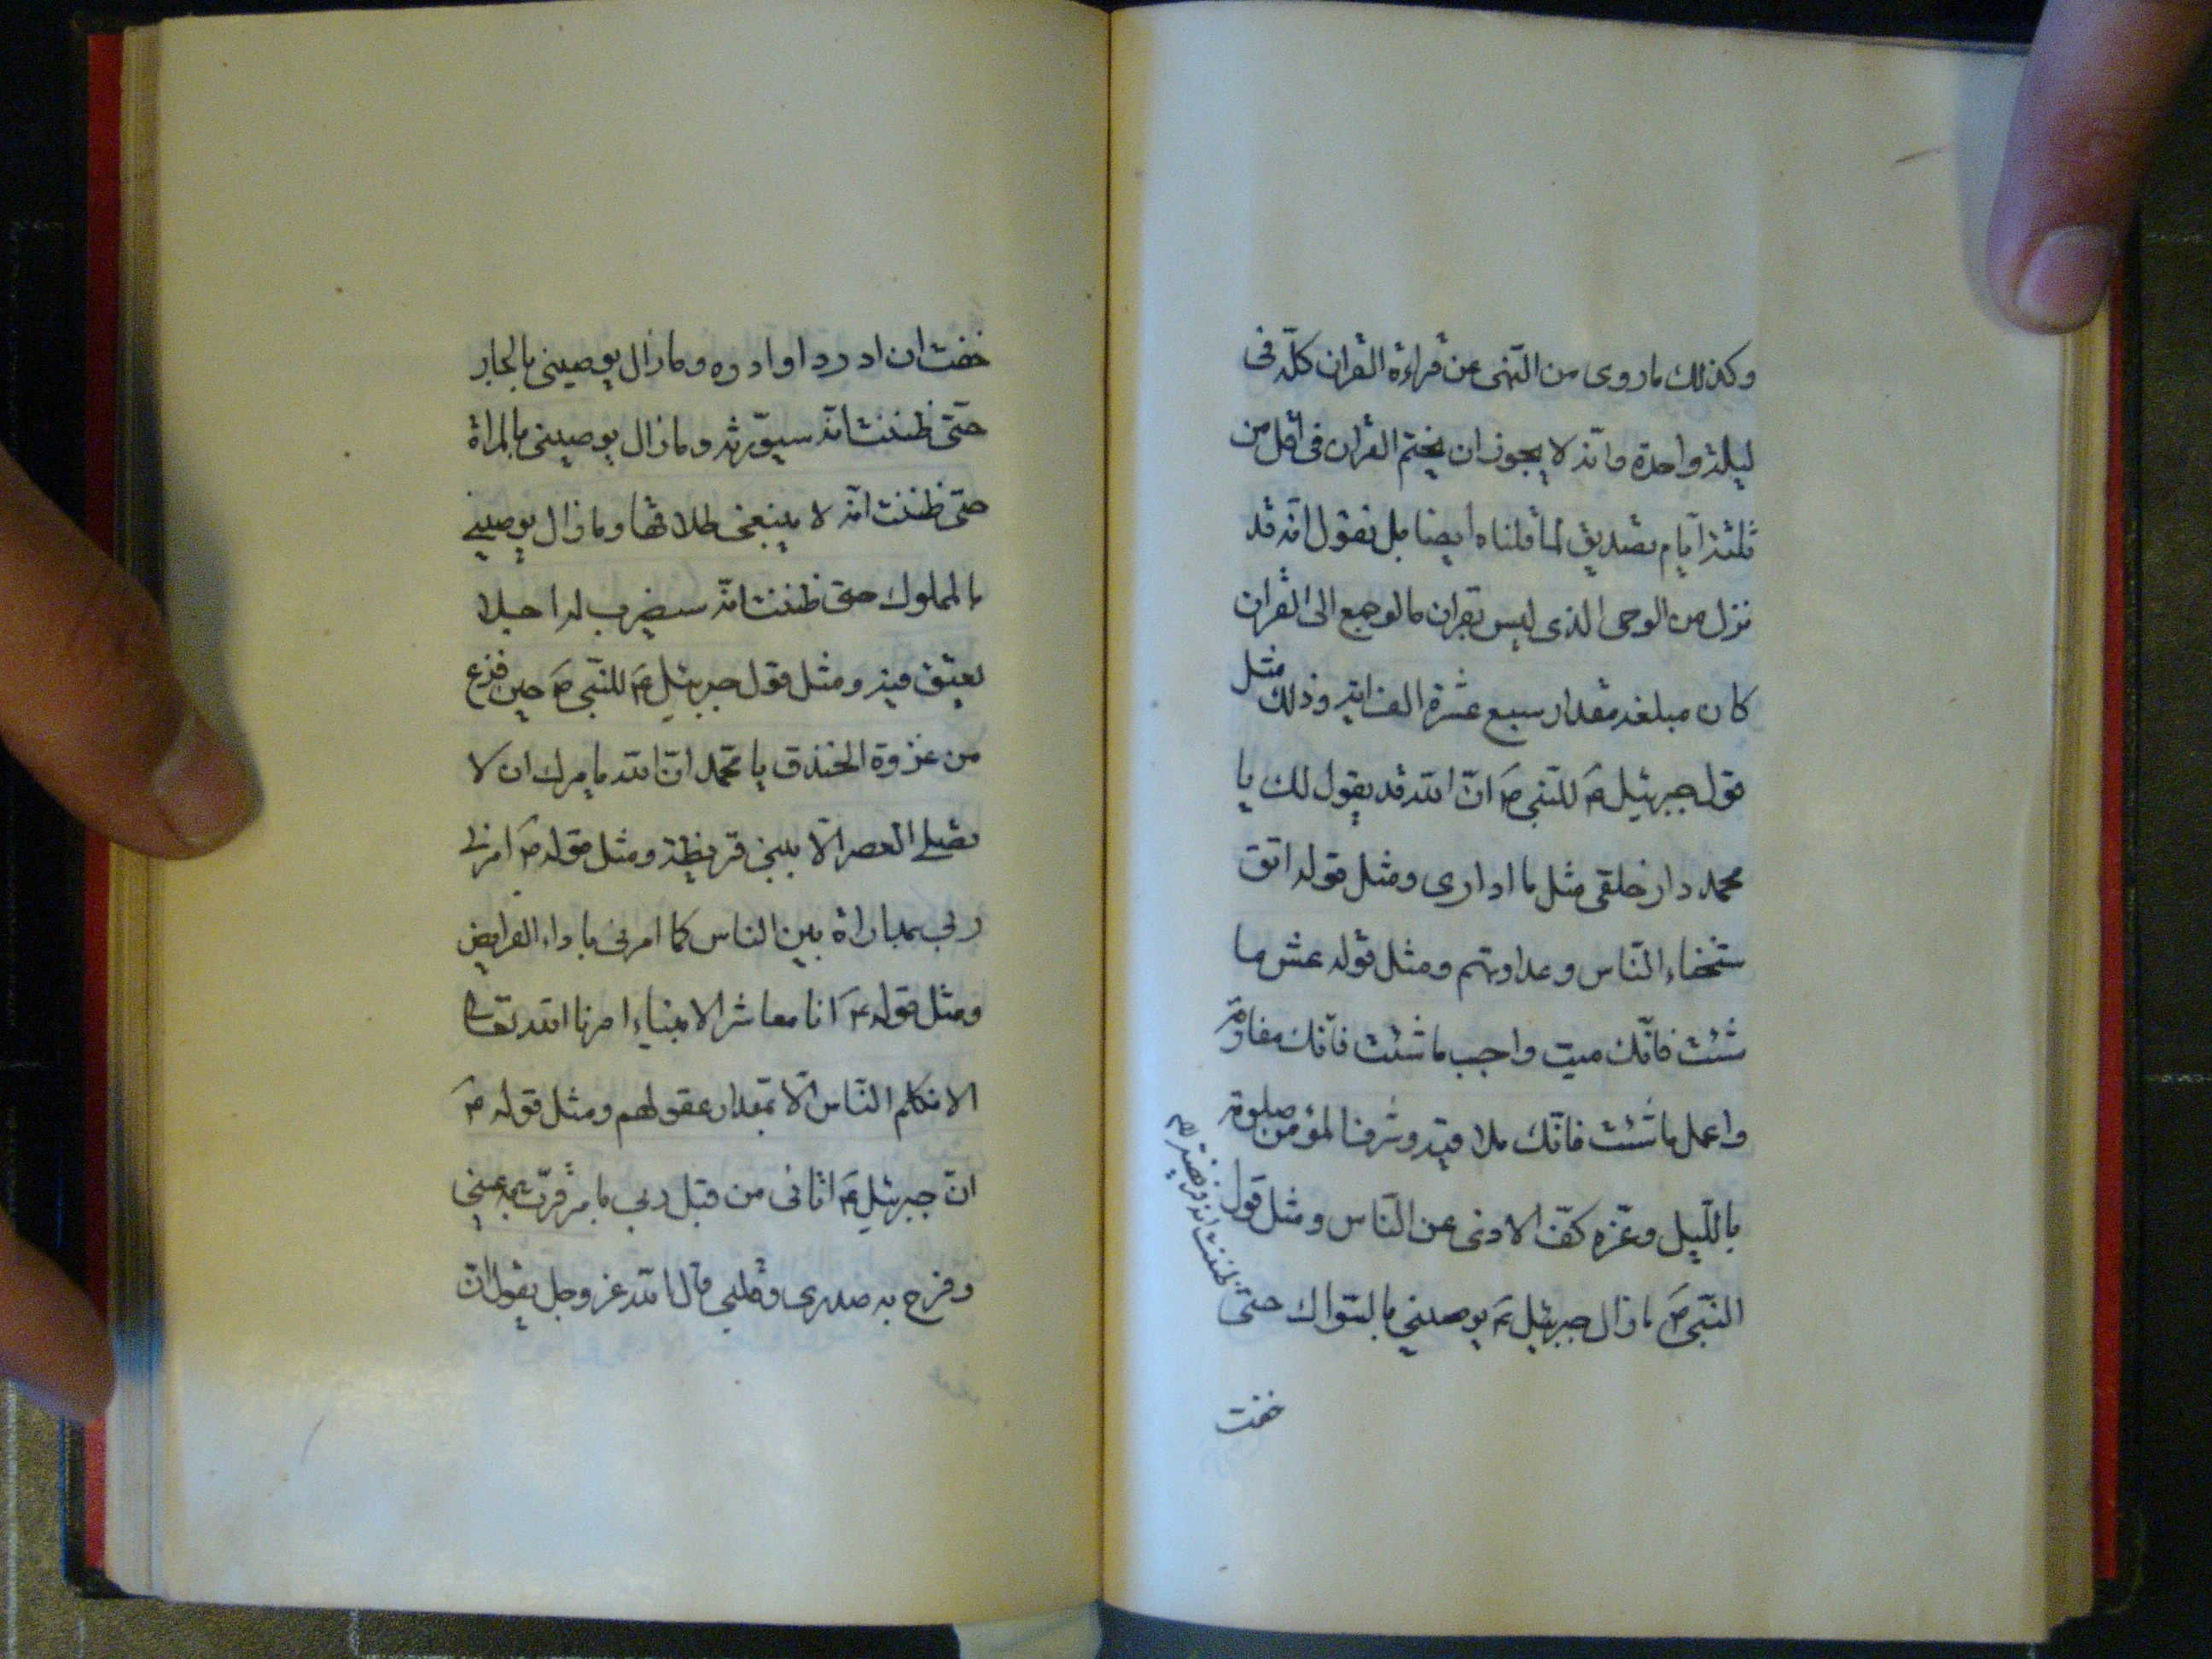 وكذلك ما روى من النّهى عن قراءة القران كلّه فى
ليلة واحدة وانّه لا يجوز ان يختم القران فى اقل من
ثلثة ايّام تصديق لما قلناه ايضا بل نقول انّه قد
نزل من الوحى الذى ليس بقران ما لو جمع الى القران
كان مبلغه مقدار سبع عشرة الف اية وذلك مثل
قول جبرئيل ع للنّبى ص انّ الله قد يقول لك يا
محمد دار خلقى مثل ما ادارى ومثل قوله اتق
شحناء النّاس وعداوتهم ومثل قوله عش ما
شئت فانّك ميت واحبب ما شئت فانّك مفارقه
واعمل ما شئت فانّك ملاقيه وشرف المؤمن صلوته
بالليل وعزّه كفّ الاذى عن النّاس ومثل قول
النّبى ص ما زال جبرئيل ع يوصينى بالسّواك حتّى
ظننت انه فريضة
خفت
خفت ان ادرد او ادره وما زال يوصينى بالجار
حتّى ظننت انّه سيورّثه وما زال يوصينى بالمراة
حتّى ظننت انّه لا ينبغى طلاقها وما زال يوصينى
بالمملوك حتى ظننت انّه سيضرب له اجلا
يعتق فيه ومثل قول جبرئيل ع للنّبى ص حين فزع
من غزوة الخندق يا محمّد انّ الله يامرك ان لا
تصلى العصر الّا ببنى قريظة ومثل قوله ص امرنى
ربى بمداراة بين الناس كما امرنى باداء الفرايض
ومثل قوله ع انا معاشر الانبياء امرنا الله تعالى
الا نكلم النّاس الّا بمقدار عقولهم ومثل قوله ص
انّ جبرئيل ع اتانى من قبل ربى بامر قرّت به عينى
وفرح به صدرى وقلبى قال الله عز وجل يقول انّ